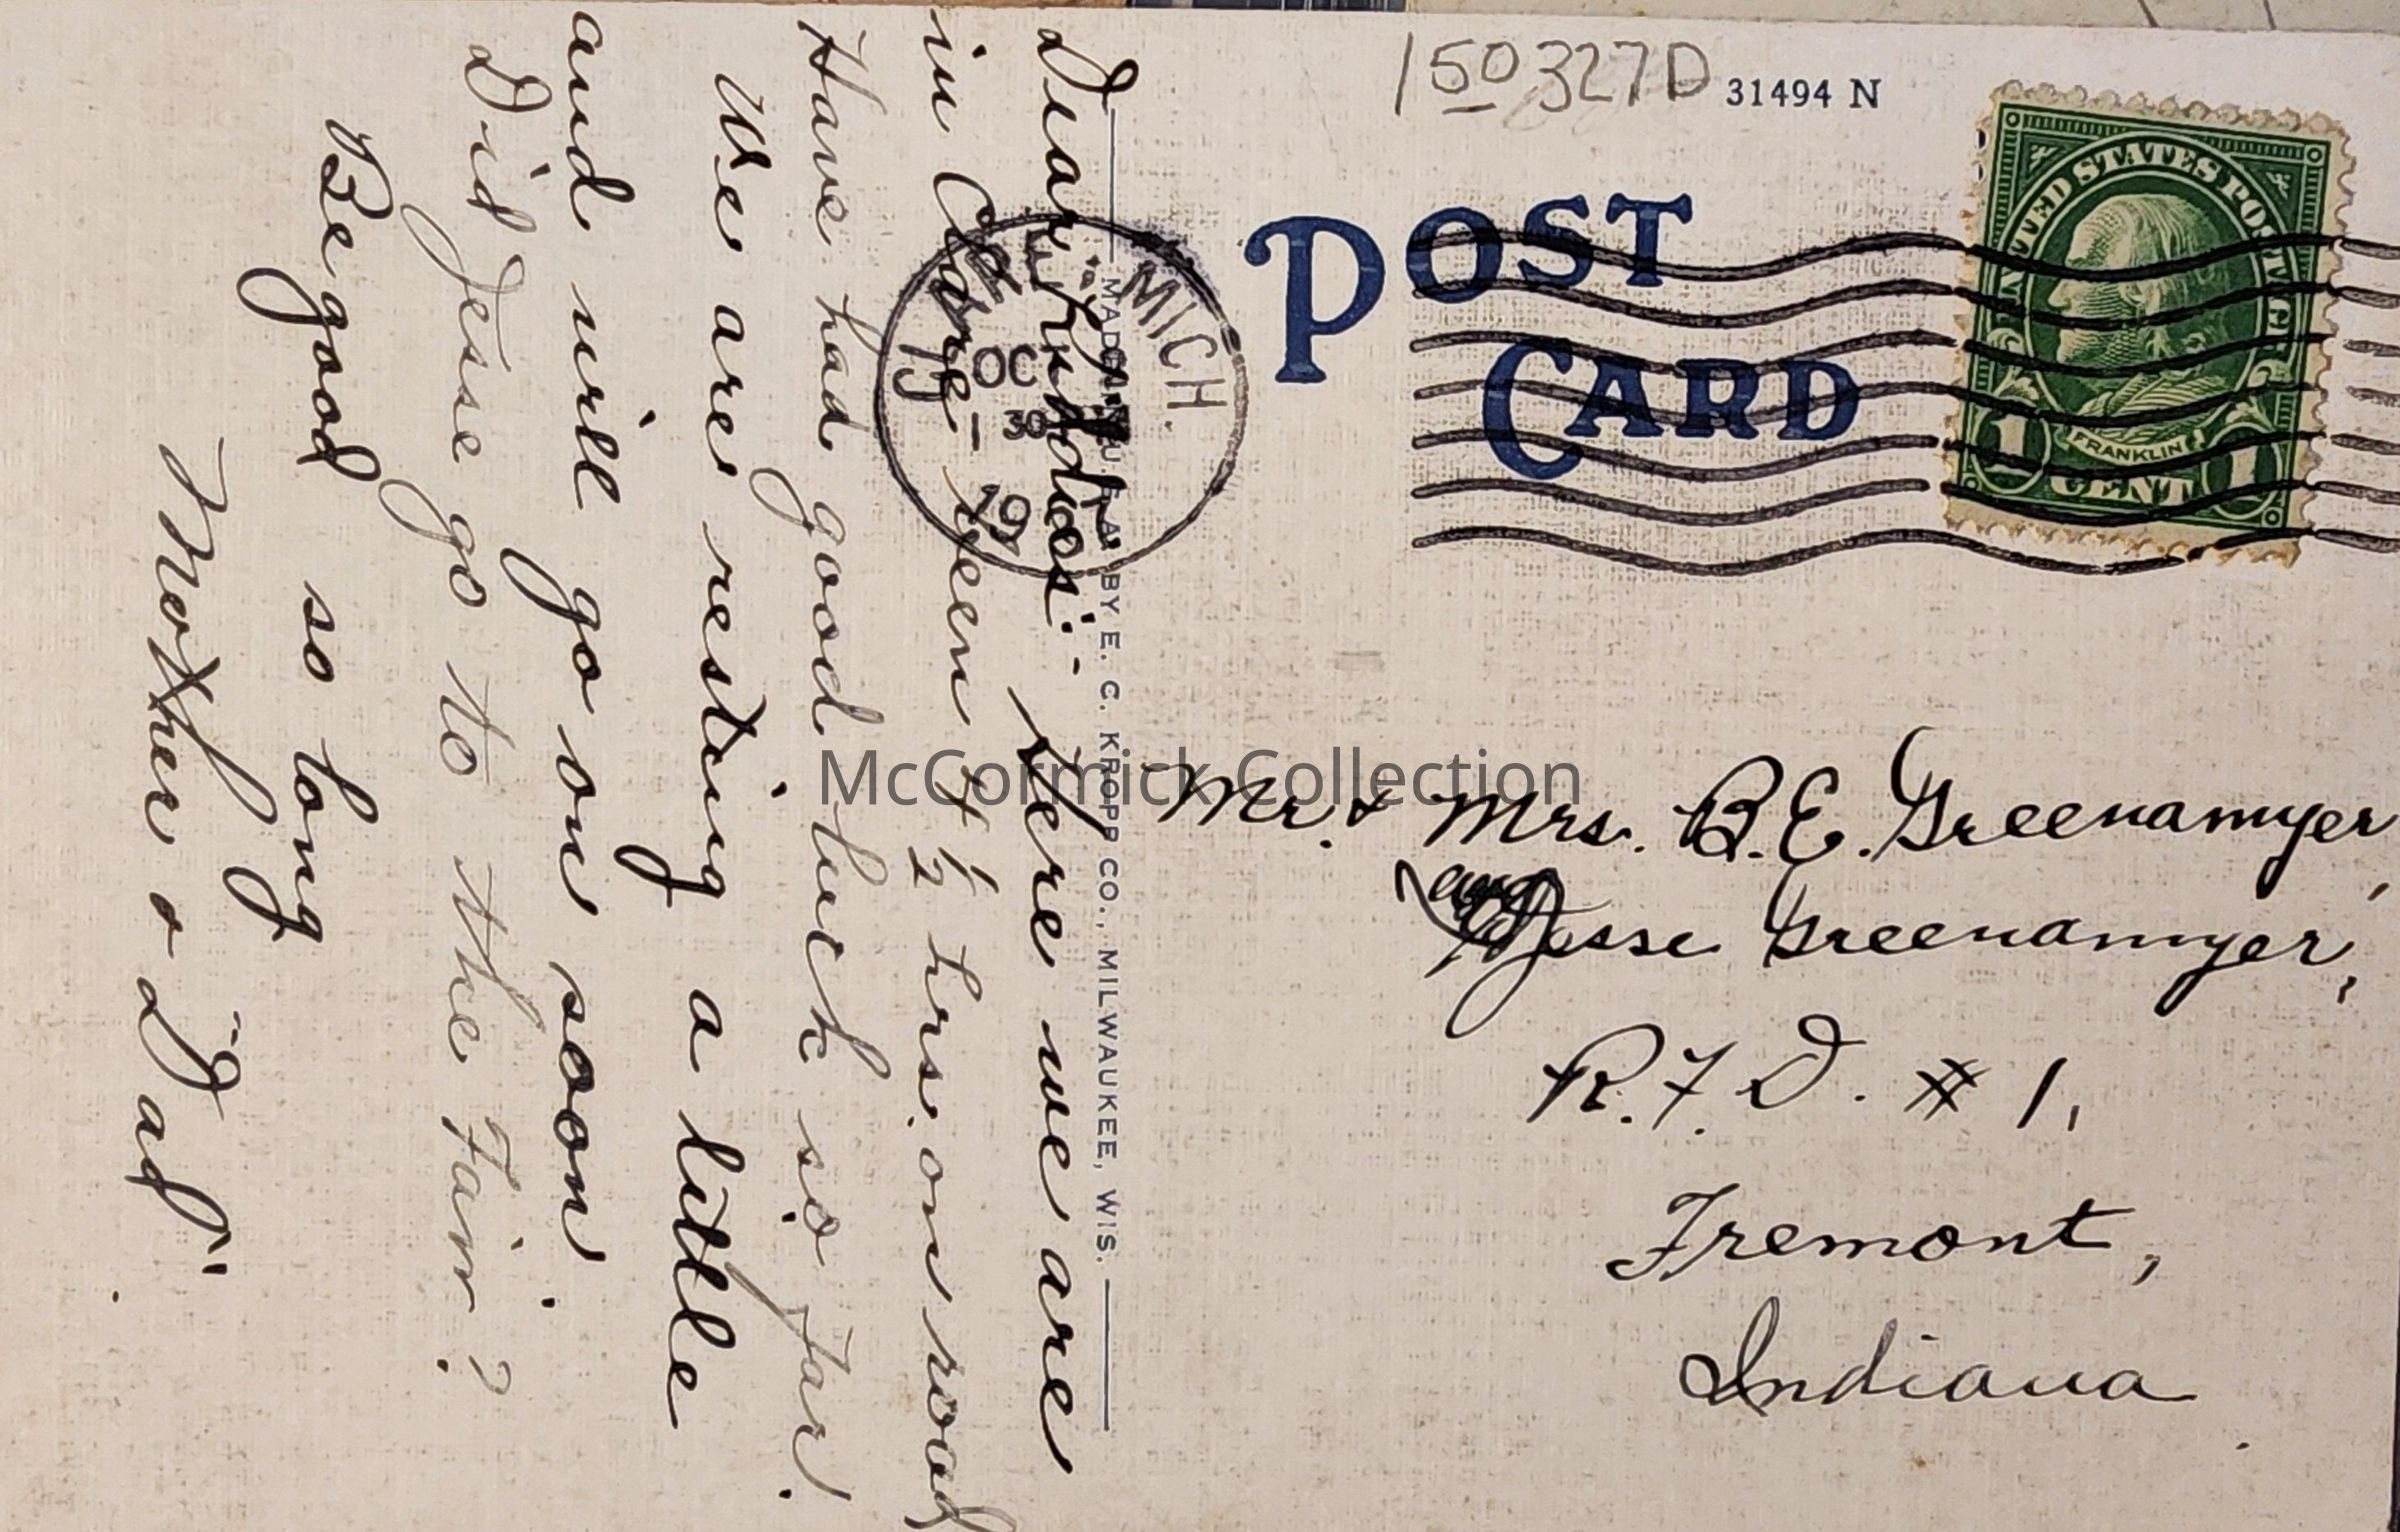 150327D
31494 N
POST
CARD
UNITED STATES POSTAGE
FRANKLIN
1 CENT 1
CLARE, MICH.
OC
30
19
MADE BY E. C. KROPP CO., MILWAUKEE, WIS.
Dear Kiddies:- Here we are
in Clare - been 4 1/2 hrs. on road
Have had good luck so far.
We are resting a little
and will go on soon.
Did Jesse go to the Fair?
Be good so long
Mother & "Dad"
Mr. & Mrs. B.E. Greenamyer,
and Jesse Greenamyer,
R.F.D. # 1,
Fremont,
Indiana
McCormick Collection